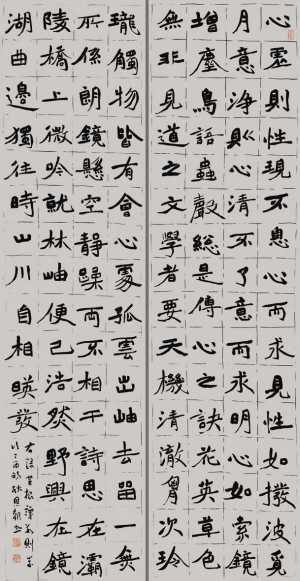 心虛則性現不息心而求見性如撥波覓
月意淨則心清不了意而求明心如索鏡
增塵鳥語蟲聲總是傳心之訣花英草色
無非見道之文學者要天機清澈胷次玲
瓏觸物皆有會心處孤雲出岫去留一無
所係朗鏡懸空靜躁兩不相干詩思在灞
陵橋上微吟就林岫便已浩然野興在鏡
湖曲邊獨往時山川自相映發
右錄菜根譚